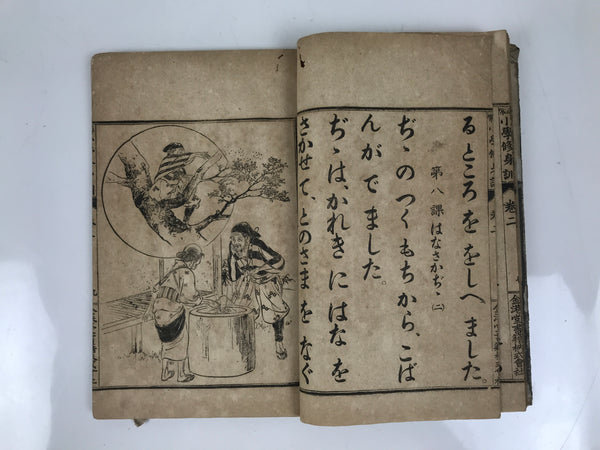 小學修身訓 卷二
るところををしへました。
第八課 はなさかぢゞ(二)
ぢゞのつくもちから、こば
んがでました。
ぢゞは、かれきにはなを
さかせて、とのさまをなぐ